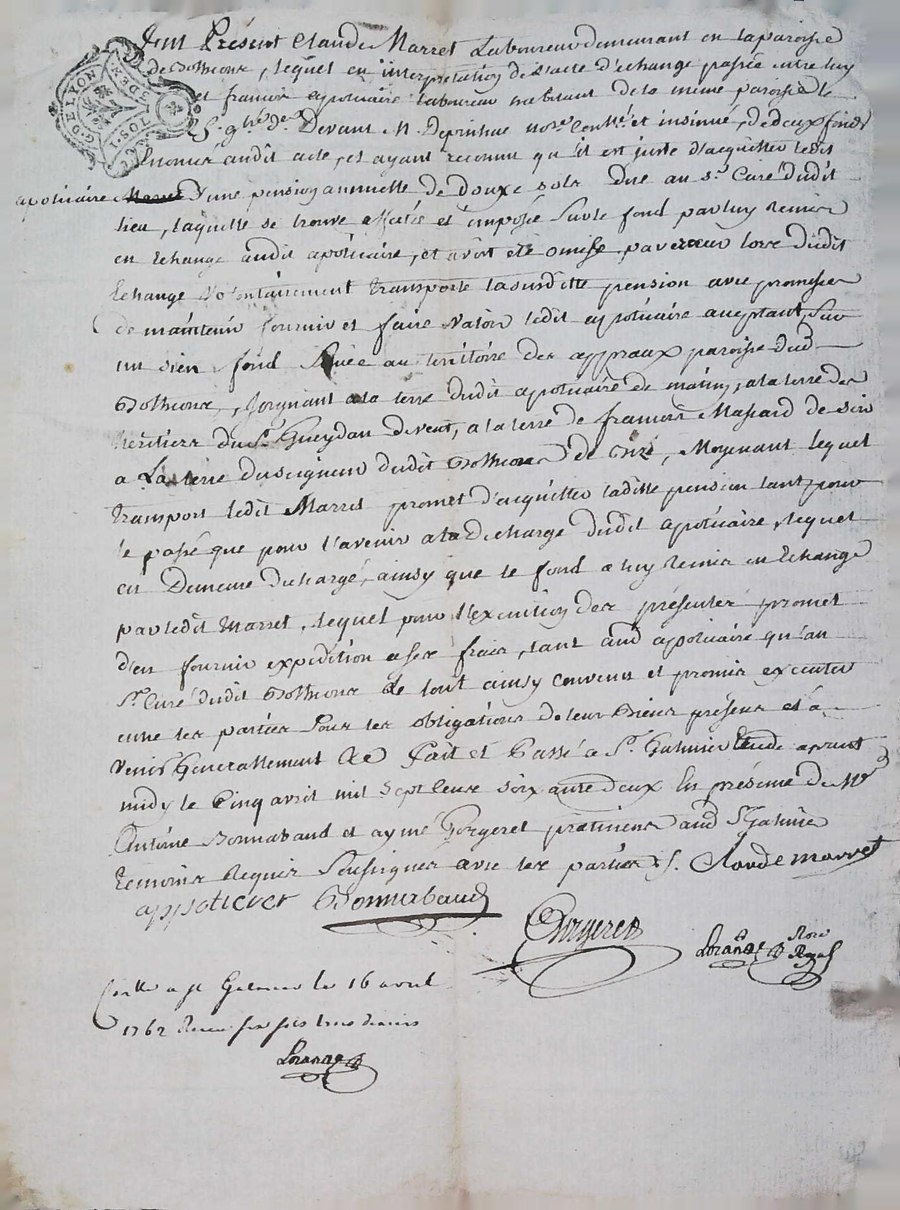 G.D LYON
MOYEN
1.SOL
Fut Présent Claude Marret Laboureur demeurant en la paroisse
de Bothieone, lequel en interpretation de l'acte d'echange passée entre luy
et francois apotuaire laboureur habitant de la même paroisse le
Devant M. no.re Con.lle et insinué, de deux fonds
Enoncés audit acte, et ayant reconnu qu'il est juste d'acquitter ledit
apotuaire Marret d'une pension annuelle de douze sols due au S.r Curé dudit
lieu, laquelle se trouve affectée et imposée sur le fond par luy Remis
en Echange audit apotuaire, et avoit été omise par erreur lors dudit
Echange volontairement transporte la susditte pension avec promesse
de maintenir fournir et faire valoir ledit apotuaire acceptant, sur
un sien fond situé au territoire des appraux paroisse dud
Bothieone, Joignant a la terre dudit apotuaire de matin, a la terre des
héritiers du S.r Gueydan de vent, a la terre de francois Massard de soir
a La terre du seigneur dudit Bothieone de bize, Moyenant lequel
transport ledit Marret promet d'acquitter laditte pension tant pour
le passé que pour l'avenir a la decharge dudit apotuaire, lequel
en Demeure dechargé, ainsy que le fond a luy Remis en Echange
par ledit Marret, lequel pour l'execution des présentes promet
d'en fournir expédition a ses frais, tant aud apotuaire qu'au
S.r Curé dudit Bothieone Le tout ainsy convenu et promis executer
entre les parties sous les obligations de leur Biens présens et à
venir Generallement &c Fait et Passé a S.t Galmier Etude apres
midy le Cinq avril mil sept cens soixante deux En présence de M.re
Antoine Bonnabaud et aymé Gorgeret praticiens aud S.t Galmier
temoins Requis Soussignés avec les parties. Claude marret
appotierer Bonnabaud
Gorgeret
Lorande Nore
Royal
Con.lle a st Galmier le 16 avril
1762 Receu six sols trois deniers
Lorande